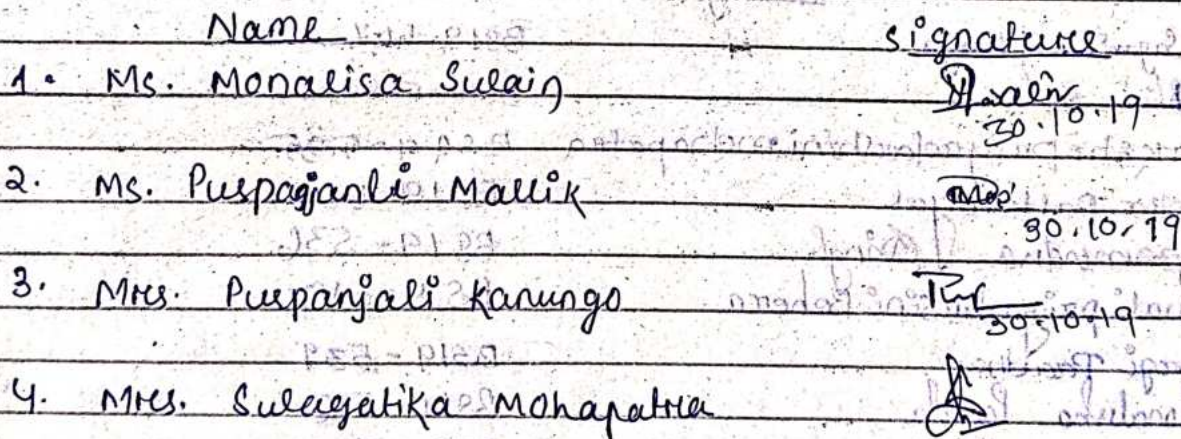 Name signature
1. Ms. Monalisa Swain
30.10.19
2. Ms. Puspagjanli Mallik
30.10.19
3. Mrs. Puspanjali Kanungo
30.10.19
4. Mrs. Swagatika Mohapatra